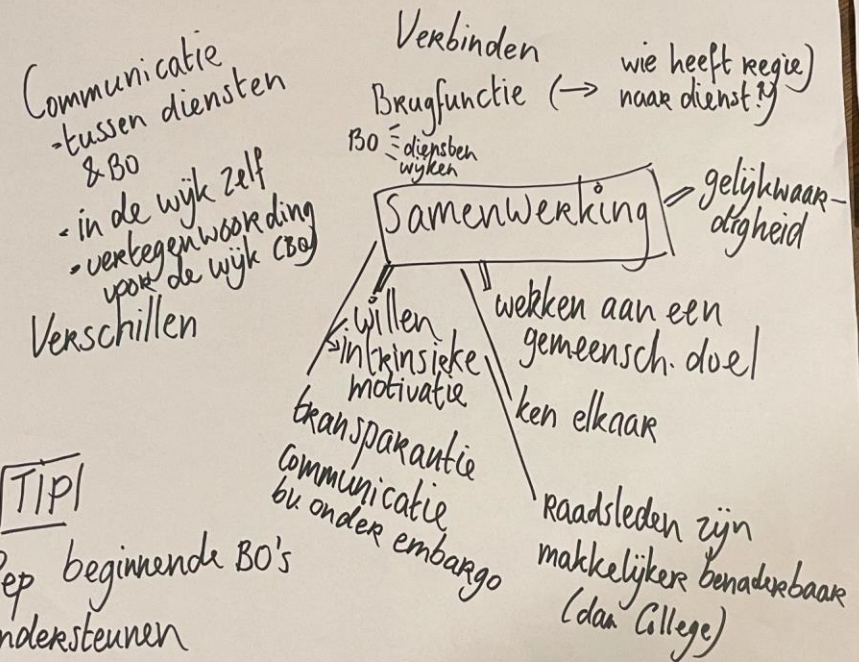 Communicatie
- tussen diensten
& BO
- in de wijk zelf
- vertegenwoording
voor de wijk (BO)
Verschillen
Verbinden
Brugfunctie (→ wie heeft regie)
naar dienst?)
BO - diensten
- wijken
Samenwerking
gelijkwaar-
digheid
willen
→ intrinsieke
motivatie
transparantie
communicatie
bv. onder embargo
werken aan een
gemeensch. doel
ken elkaar
Raadsleden zijn
makkelijker benaderbaar
(dan College)
TIP
ep beginnende BO's
ndersteunen